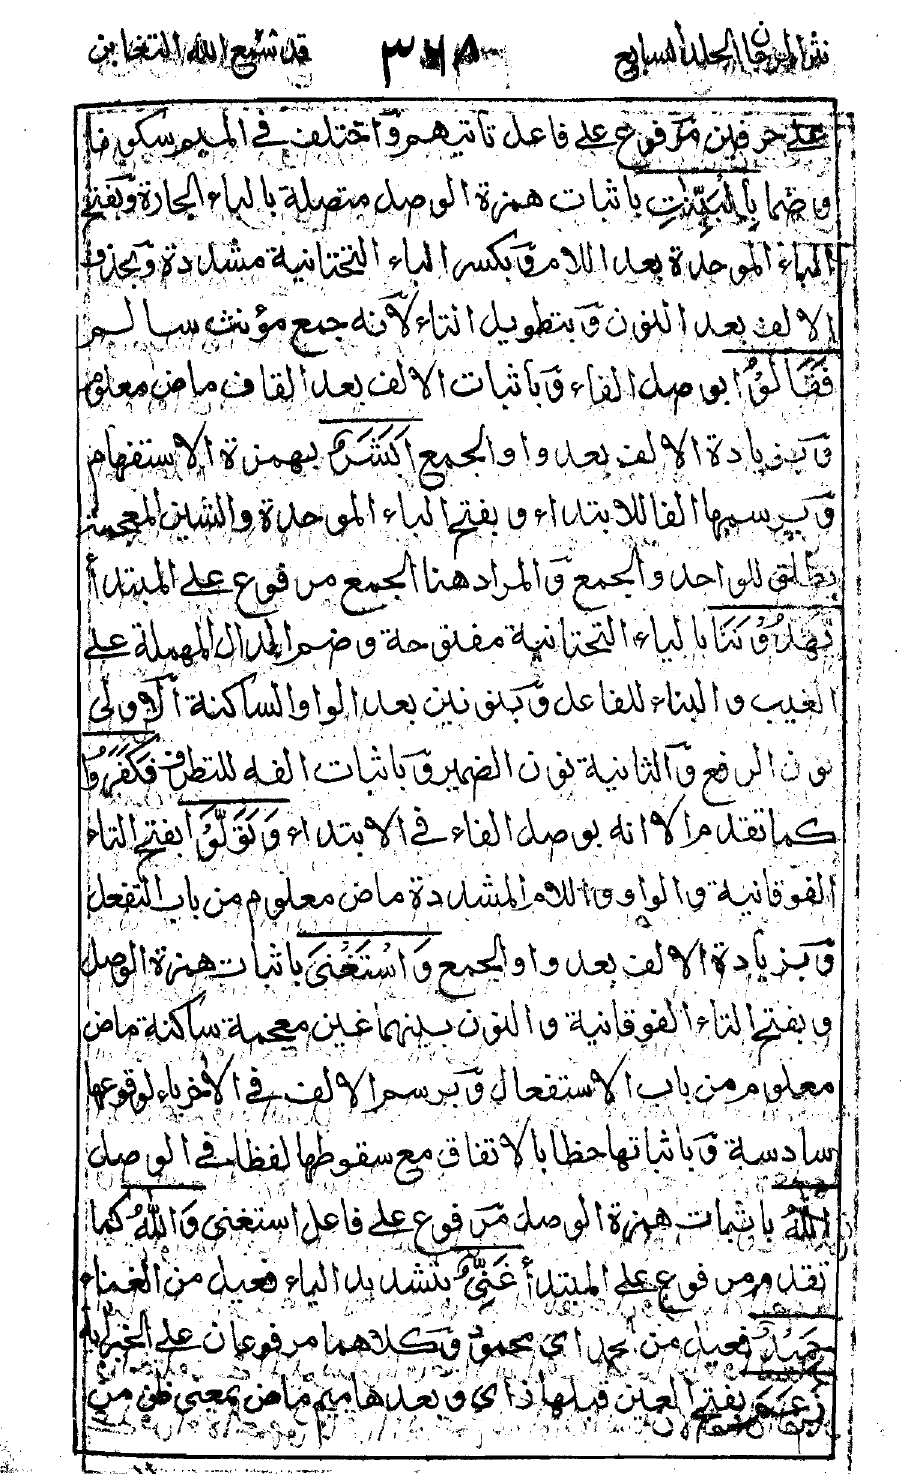 نثر المرجان الجلد السابع ٣٦٥ قد سمع الله التغابن
على حرفين مرفوع على فاعل تأتيهم وَاختلف في الميم سكونا
وضما بِالْبَيِّنٰتِ باثبات همزة الوصل متصلة بالباء الجارة وَبفتح
الباء الموحدة بعد اللام وَبكسر الياء التحتانية مشددة وَبحذف
الالف بعد النون وَبتطويل التاء لأنه جمع مؤنث سالم
فَقَالُوْا بوصل الفاء وَباثبات الالف بعد القاف ماض معلوم
وَبزيادة الالف بعد واو الجمع اَبَشَرٌ بهمزة الاستفهام
وَبرسمها الفا للابتداء وبفتح الباء الموحدة والشين المعجمة
يطلق للواحد والجمع وَالمراد هنا الجمع مرفوع على المبتدأ
يَهْدُوْنَنَا بالياء التحتانية مفتوحة وضم الدال المهملة على
الغيب والبناء للفاعل وَبنونين بعد الواو الساكنة الاولى
نون الرفع وَالثانية نون الضمير وَباثبات الفه للتطرف فَكَفَرُوْا
كما تقدم الا انه بوصل الفاء في الابتداء وَتَوَلَّوْا بفتح التاء
الفوقانية والواو واللام المشددة ماض معلوم من باب التفعل
وَبزيادة الالف بعد واو الجمع وَاسْتَغْنَى باثبات همزة الوصل
وبفتح التاء الفوقانية والنون بينهما غين معجمة ساكنة ماض
معلوم من باب الاستفعال وَبرسم الالف في الآخر ياء لوقوعها
سادسة وَباثباتها خطا بالاتفاق مع سقوطها لفظا في الوصل
اللّٰهُ باثبات همزة الوصل مرفوع على فاعل استغنى وَاللّٰهُ كما
تقدم مرفوع على المبتدأ غَنِيٌّ بتشديد الياء فعيل من الغناء
حَمِيْدٌ فعيل من الحمد اي محمود وَكلاهما مرفوعان على الخبرية
زَعَمَ بفتح العين قبلها زاي وَبعدها ميم ماض بمعنى ظن من